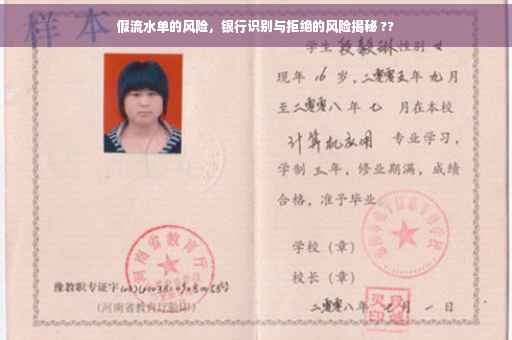 假流水单的风险，银行识别与拒绝的风险揭秘 ??
样本
学生段毅琳性别 女
现年 16 岁，二零零五年 九 月
至二零零八 年 七 月在本校
计算机应用 专业学习，
学制 三 年，修业期满，成绩
合格，准予毕业
学校（章）
校长（章）
二零零八年 七 月 一 日
河南省教育厅
豫教职专证字
(河南省教育厅验印)